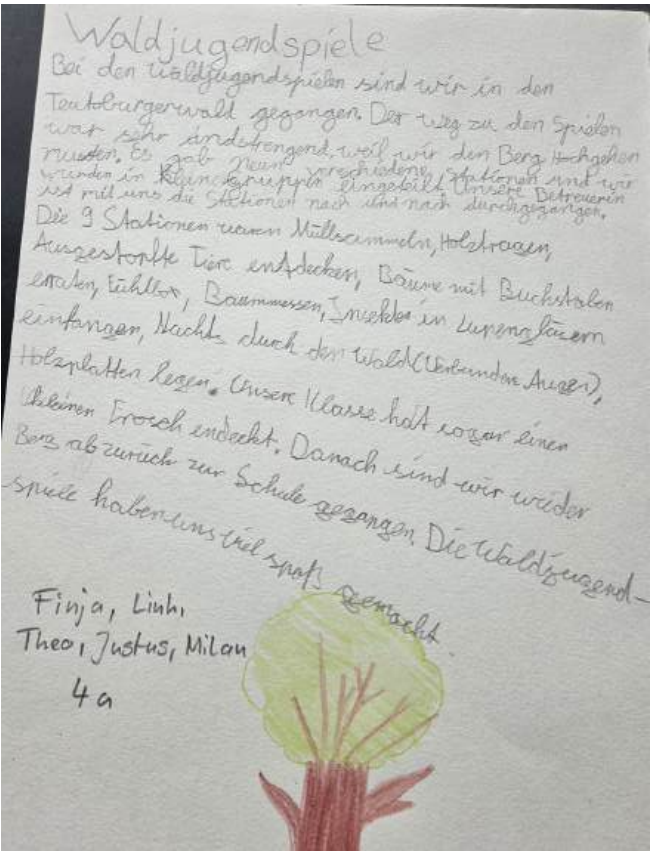 Waldjugendspiele
Bei den Waldjugendspielen sind wir in den
Teutoburgerwald gegangen. Der weg zu den Spielen
war sehr andstrengend, weil wir den Berg Hochgehen
mussten. Es gab neun verschiedene Stationen und wir
wurden in Kleinegruppen eingeteilt. Unsere Betreuerin
ist mit uns die Stationen nach und nach durchgegangen.
Die 9 Stationen waren Müllsammeln, Holztragen,
Ausgestopfte Tiere entdecken, Bäume mit Buchstaben
erraten, Fühlbox, Baummessen, Insekten in Lupengläsern
einfangen, Nachts durch den Wald (Verbundene Augen),
Holzplatten legen. Unsere Klasse hat sogar einen
kleinen Frosch endeckt. Danach sind wir wieder
Berg ab zurück zur Schule gegangen. Die Waldjugend-
spiele haben uns viel spaß gemacht.
Finja, Linh,
Theo, Justus, Milan
4a